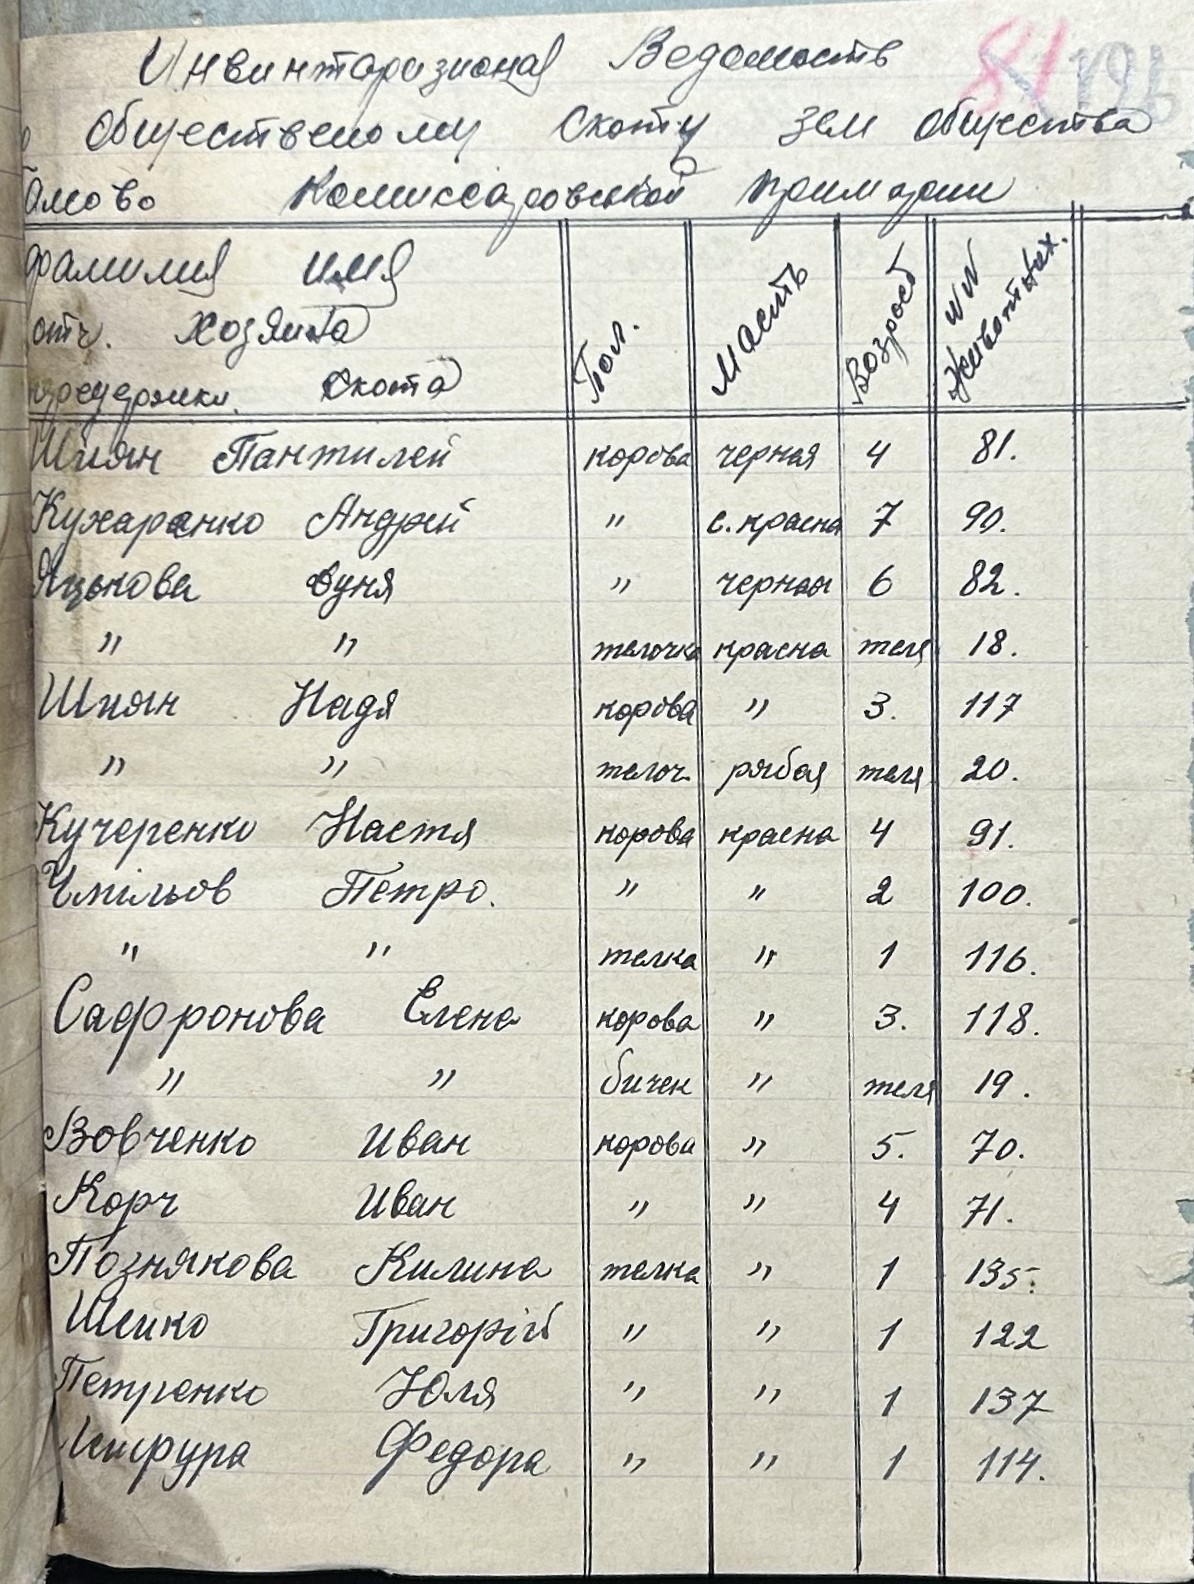 81 196
Инвинтаризионая Ведомость
общественому скоту зем общества
Комиссаровской примарии
фамилия имя
отч. хозяина
скота
Пол.
Масть
Возрост
NN Животных.
Шиян Пантилей корова черная 4 81.
Кухаренко Андрей " с. красна 7 90.
Яцькова Дуня " черная 6 82.
" " телочка красна теля 18.
Шиян Надя корова " 3. 117
" " телоч. рябая теля 20.
Кучеренко Настя корова красна 4 91.
Чмільов Петро. " " 2 100.
" " телка " 1 116.
Сафронова Елена корова " 3. 118.
" " бичек " теля 19.
Вовченко Иван корова " 5. 70.
Корч Иван " " 4 71.
Познякова Килина телка " 1 135.
Шейко Григорій " " 1 122
Петренко Юля " " 1 137
Федора " " 1 114.